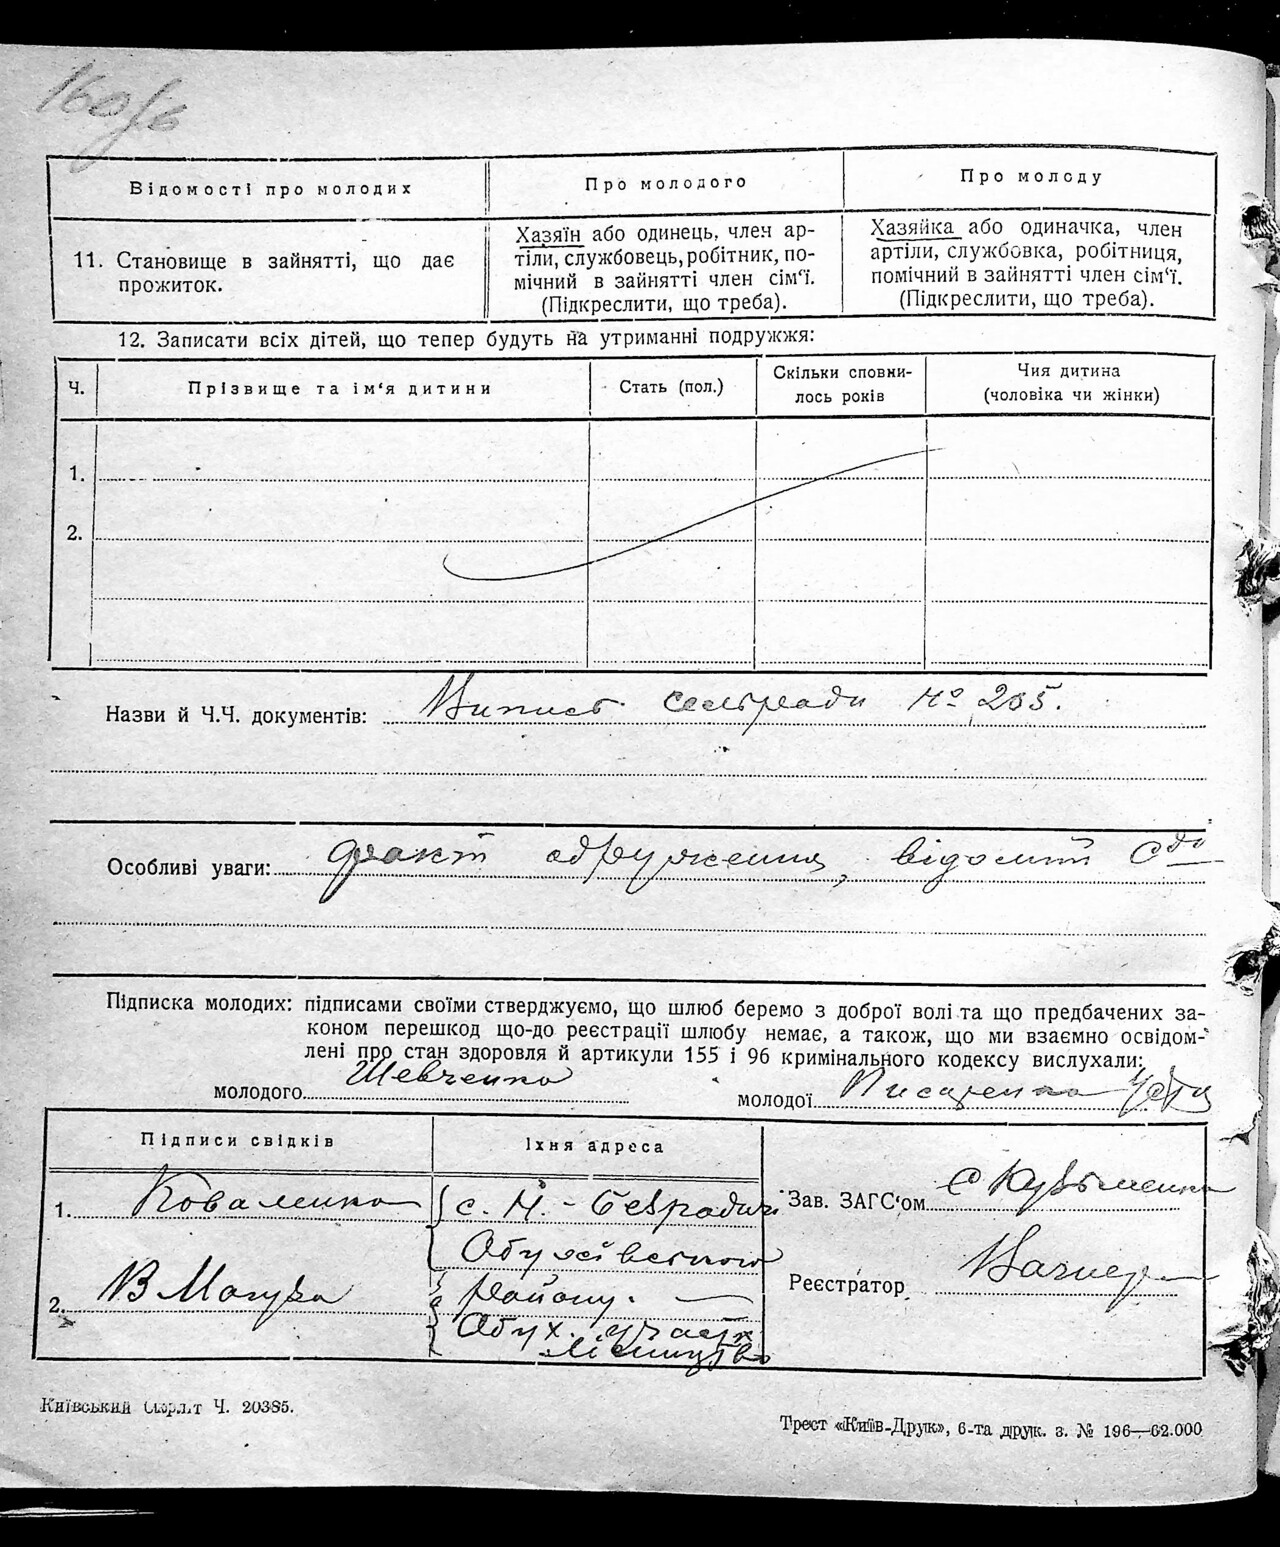 160/зв
Відомості про молодих
Про молодого
Про молоду
11. Становище в зайнятті, що дає
прожиток.
Хазяїн або одинець, член ар-
тіли, службовець, робітник, по-
мічний в зайнятті член сім'ї.
(Підкреслити, що треба).
Хазяйка або одиначка, член
артіли, службовка, робітниця,
помічний в зайнятті член сім'ї.
(Підкреслити, що треба).
12. Записати всіх дітей, що тепер будуть на утриманні подружжя:
Ч.
Прізвище та ім'я дитини
Стать (пол.)
Скільки сповни-
лось років
Чия дитина
(чоловіка чи жінки)
1.
2.
Назви й Ч.Ч. документів: Випись сельради № 205.
Особливі уваги: факт одруження, відомий
Підписка молодих: підписами своїми стверджуємо, що шлюб беремо з доброї волі та що предбачених за-
коном перешкод що-до реєстрації шлюбу немає, а також, що ми взаємно освідом-
лені про стан здоровля й артикули 155 і 96 кримінального кодексу вислухали:
молодого Шевченко
молодої Писаренко
Підписи свідків
Їхня адреса
1. Коваленко
с. Н.-Безрадичі
Обухівського
2. В Магура
району.
Обух. участк
лісництво
Зав. ЗАГС'ом С Кузьменко
Реєстратор
Київський Окрліт Ч. 20385.
Трест «Київ-Друк», 6-та друк. з. № 196—62.000